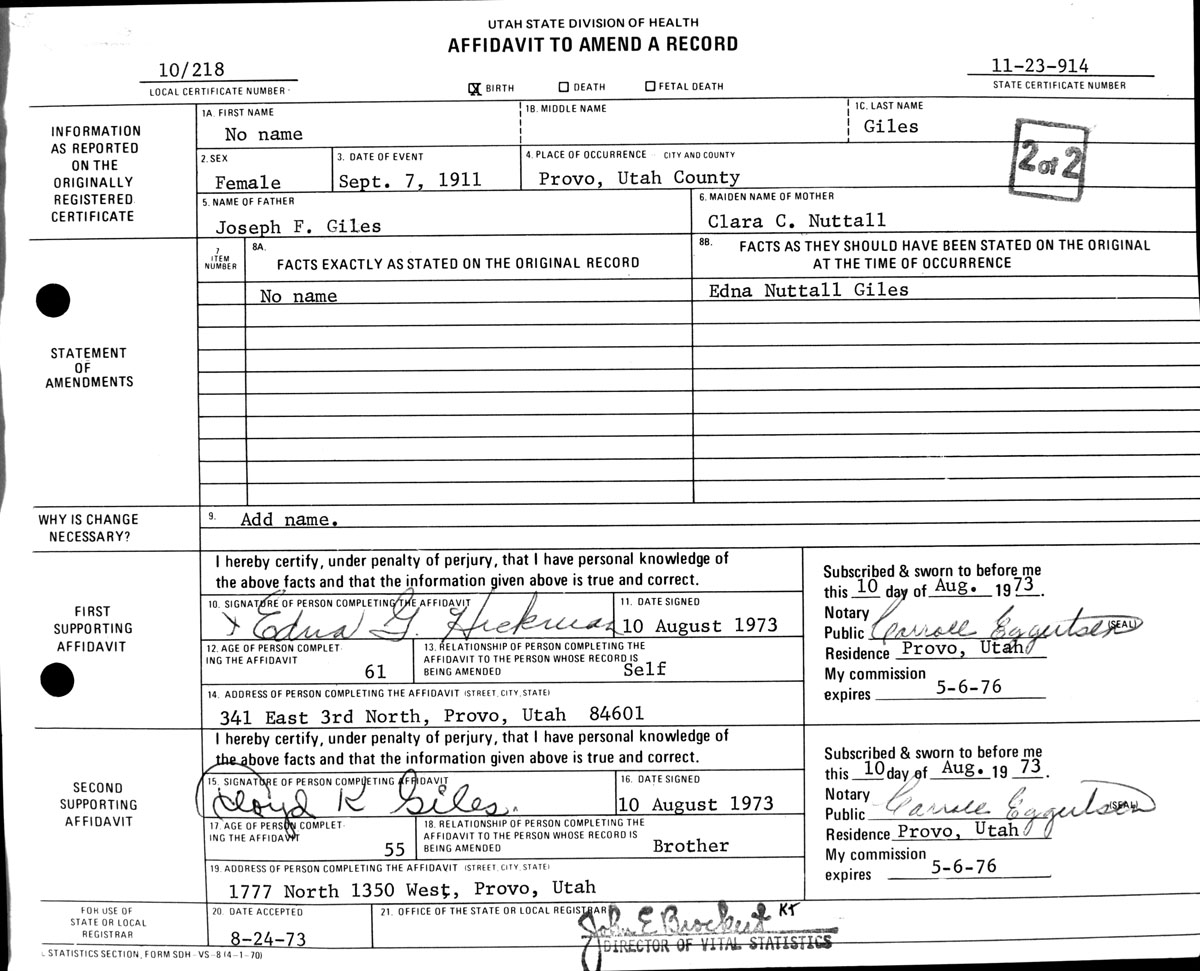 UTAH STATE DIVISION OF HEALTH
AFFIDAVIT TO AMEND A RECORD
10/218
LOCAL CERTIFICATE NUMBER
X BIRTH DEATH FETAL DEATH
11-23-914
STATE CERTIFICATE NUMBER
INFORMATION
AS REPORTED
ON THE
ORIGINALLY
REGISTERED
CERTIFICATE
1A. FIRST NAME
No name
1B. MIDDLE NAME
1C. LAST NAME
Giles
2 of 2
2. SEX
Female
3. DATE OF EVENT
Sept. 7, 1911
4. PLACE OF OCCURRENCE CITY AND COUNTY
Provo, Utah County
5. NAME OF FATHER
Joseph F. Giles
6. MAIDEN NAME OF MOTHER
Clara C. Nuttall
STATEMENT
OF
AMENDMENTS
7
ITEM
NUMBER
8A.
FACTS EXACTLY AS STATED ON THE ORIGINAL RECORD
8B. FACTS AS THEY SHOULD HAVE BEEN STATED ON THE ORIGINAL
AT THE TIME OF OCCURRENCE
No name
Edna Nuttall Giles
WHY IS CHANGE
NECESSARY?
9. Add name.
FIRST
SUPPORTING
AFFIDAVIT
I hereby certify, under penalty of perjury, that I have personal knowledge of
the above facts and that the information given above is true and correct.
10. SIGNATURE OF PERSON COMPLETING THE AFFIDAVIT
x Edna G. Hickman
11. DATE SIGNED
10 August 1973
12. AGE OF PERSON COMPLET-
ING THE AFFIDAVIT
61
13. RELATIONSHIP OF PERSON COMPLETING THE
AFFIDAVIT TO THE PERSON WHOSE RECORD IS
BEING AMENDED
Self
14. ADDRESS OF PERSON COMPLETING THE AFFIDAVIT (STREET, CITY, STATE)
341 East 3rd North, Provo, Utah 84601
Subscribed & sworn to before me
this 10 day of Aug. 1973.
Notary
Public Carroll Eggertsen (SEAL)
Residence Provo, Utah
My commission
expires 5-6-76
SECOND
SUPPORTING
AFFIDAVIT
I hereby certify, under penalty of perjury, that I have personal knowledge of
the above facts and that the information given above is true and correct.
15. SIGNATURE OF PERSON COMPLETING AFFIDAVIT
Lloyd K Giles
16. DATE SIGNED
10 August 1973
17. AGE OF PERSON COMPLET-
ING THE AFFIDAVIT
55
18. RELATIONSHIP OF PERSON COMPLETING THE
AFFIDAVIT TO THE PERSON WHOSE RECORD IS
BEING AMENDED
Brother
19. ADDRESS OF PERSON COMPLETING THE AFFIDAVIT (STREET, CITY, STATE)
1777 North 1350 West, Provo, Utah
Subscribed & sworn to before me
this 10 day of Aug. 19 73.
Notary
Public Carroll Eggertsen (SEAL)
Residence Provo, Utah
My commission
expires 5-6-76
FOR USE OF
STATE OR LOCAL
REGISTRAR
20. DATE ACCEPTED
8-24-73
21. OFFICE OF THE STATE OR LOCAL REGISTRAR
John E Brockert KT
DIRECTOR OF VITAL STATISTICS
L STATISTICS SECTION, FORM SDH - VS - 8 (4-1-70)